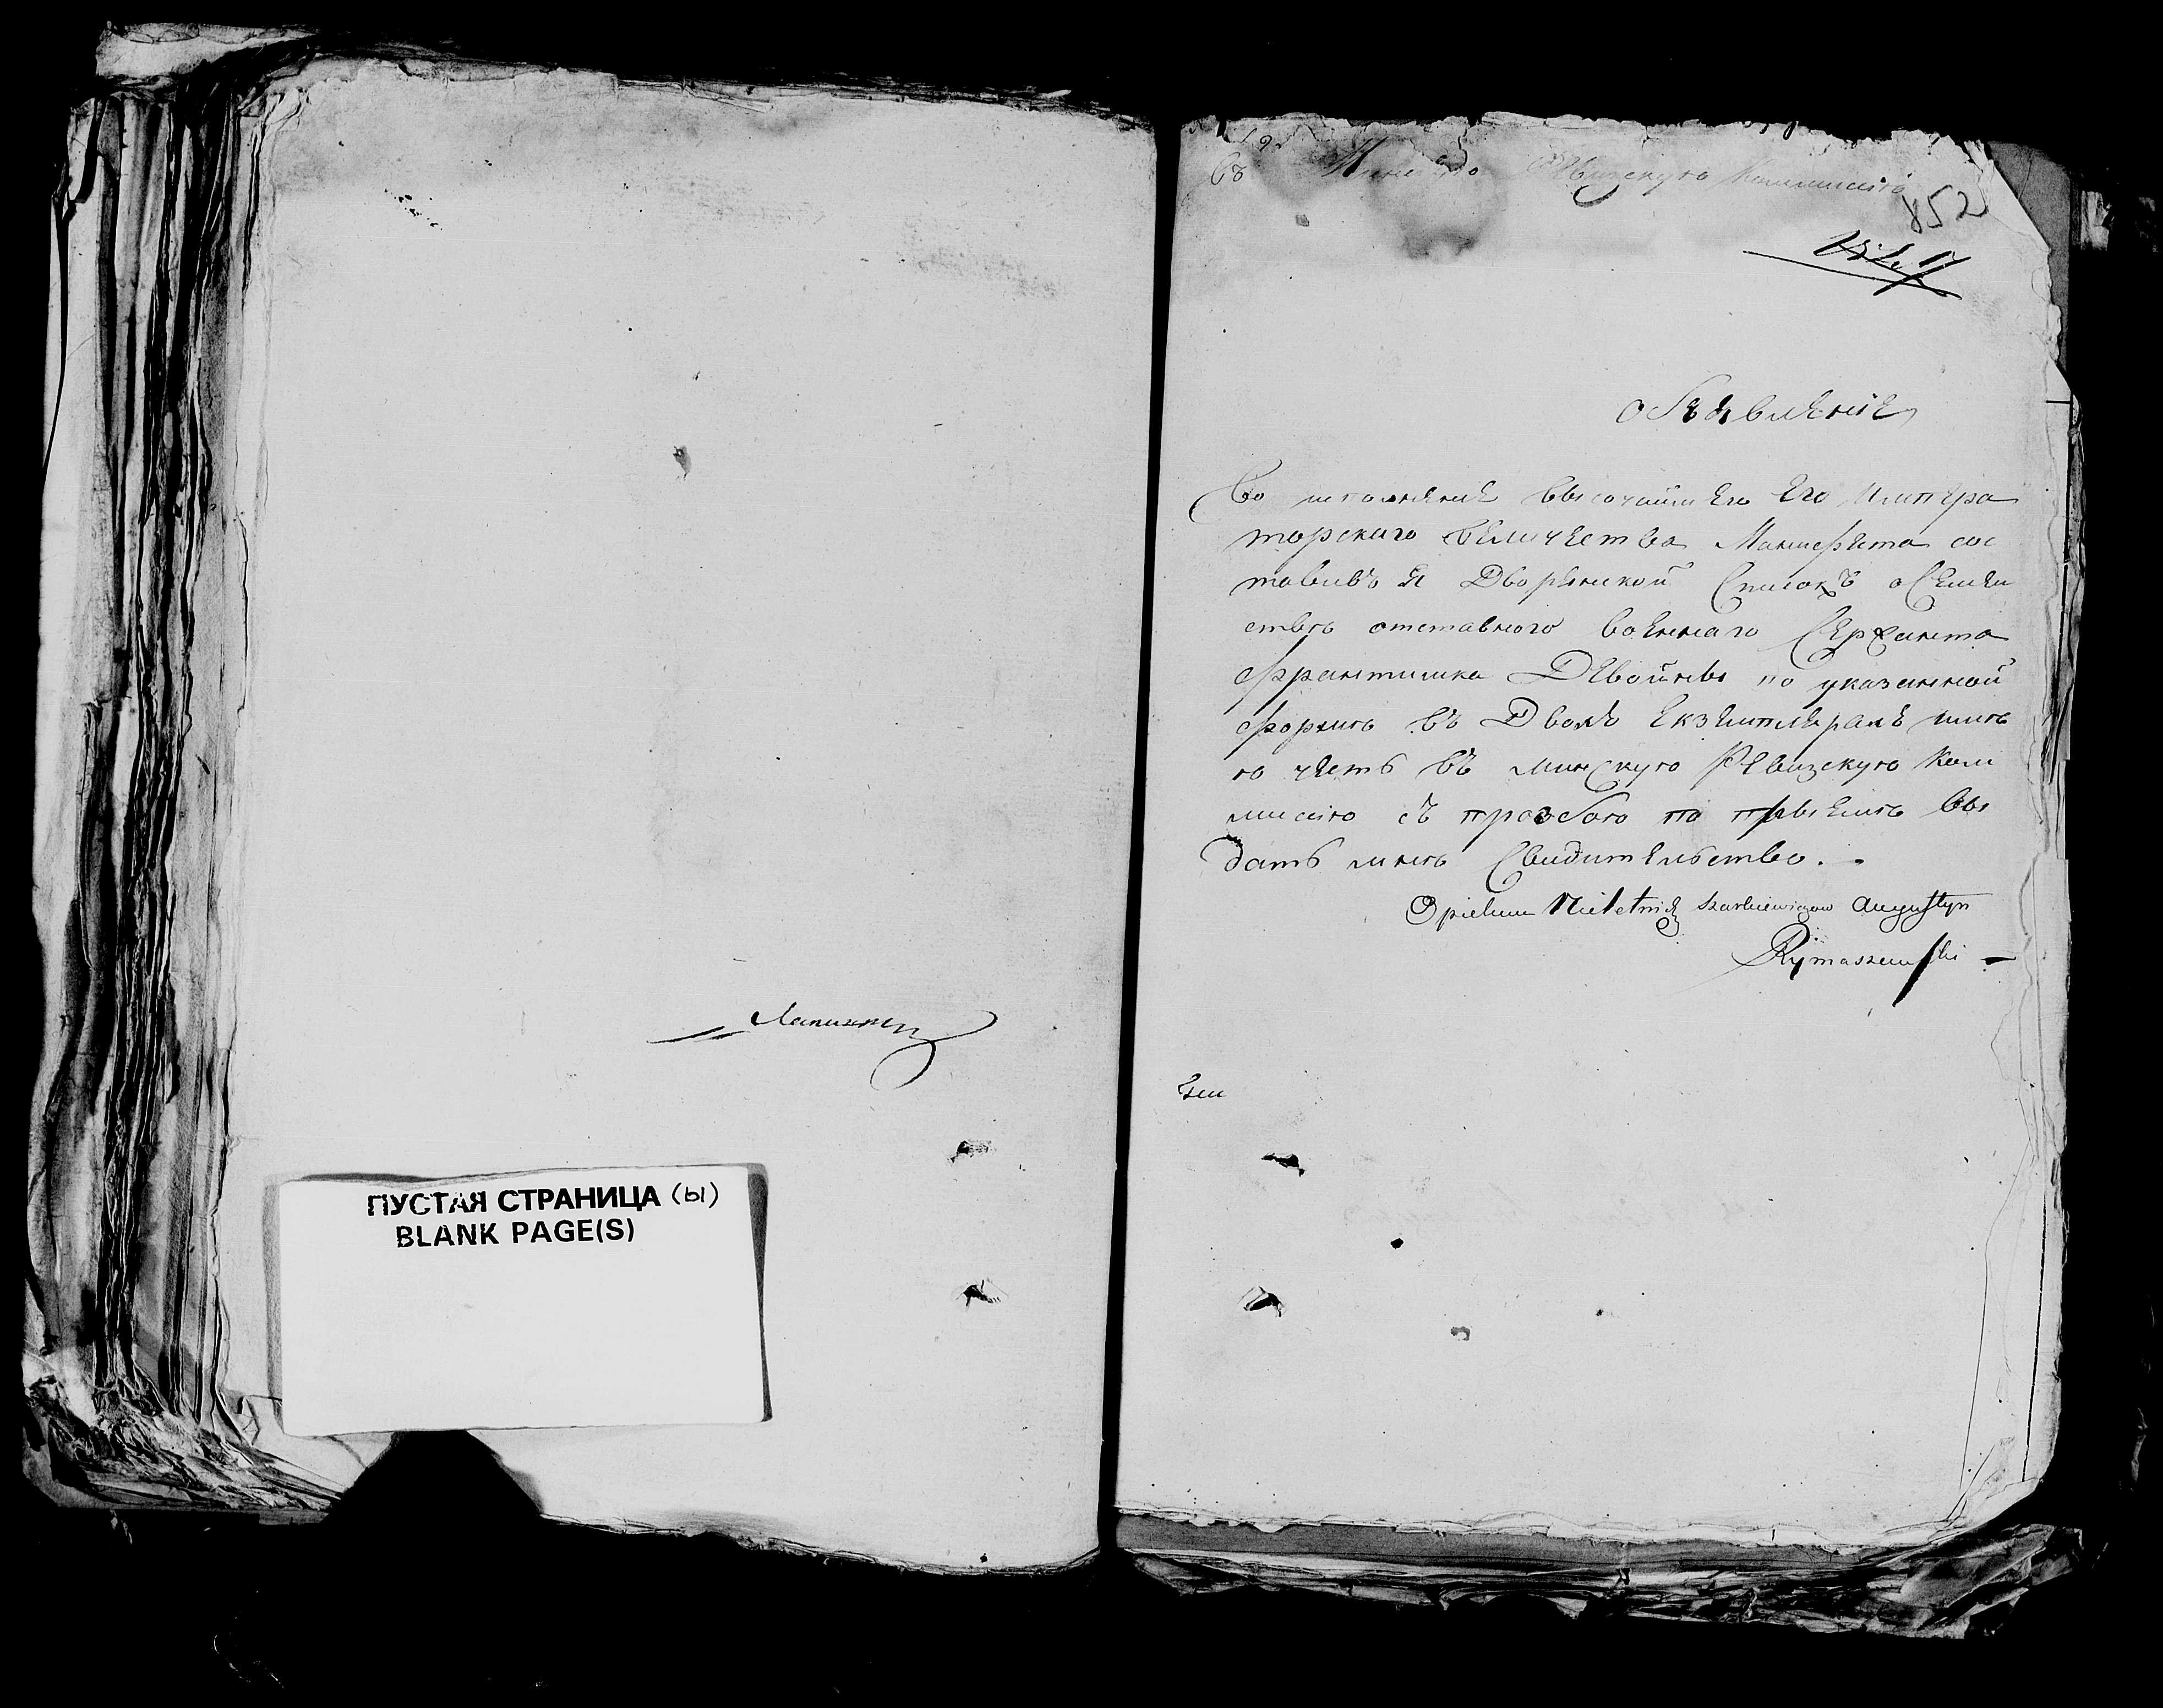 ПУСТАЯ СТРАНИЦА (ы)
BLANK PAGE(S)
Въ Минскую Ревизскую Коммисiю
852
обЪявленiе
Во исполненiе высочайшего Его Импера
торскаго величества Манифеста сос
тавивъ я Дворянской Списокъ о Семей
ствѣ отставного военнаго Сержанта
Франтишка Девойны по указанной
формѣ въ Двохъ Екземплярахъ имѣ
ю честь въ минскую Ревизскую Ком
мисiю съ прозбою по прыемѣ вы
дать мнѣ Свидительство. —
Opiekun Nieletnich Augustyn
Rymaszewski —